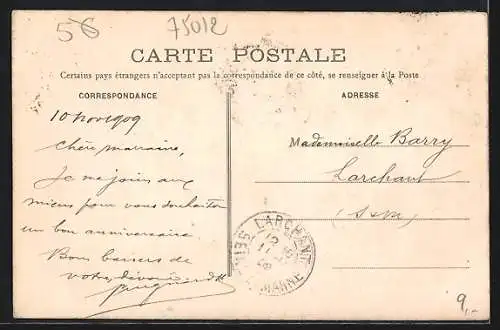 56
75012
CARTE POSTALE
Certains pays étrangers n'acceptant pas la correspondance de ce côté, se renseigner à la Poste
CORRESPONDANCE
ADRESSE
10 nov 1909
Chère marraine,
Je me joins aux
miens pour vous souhaiter
un bon anniversaire
Bons baisers de
votre dévoué
Mademoiselle Barry
Larchant
(S-M)
LARCHANT
SEINE
MARNE
9,-